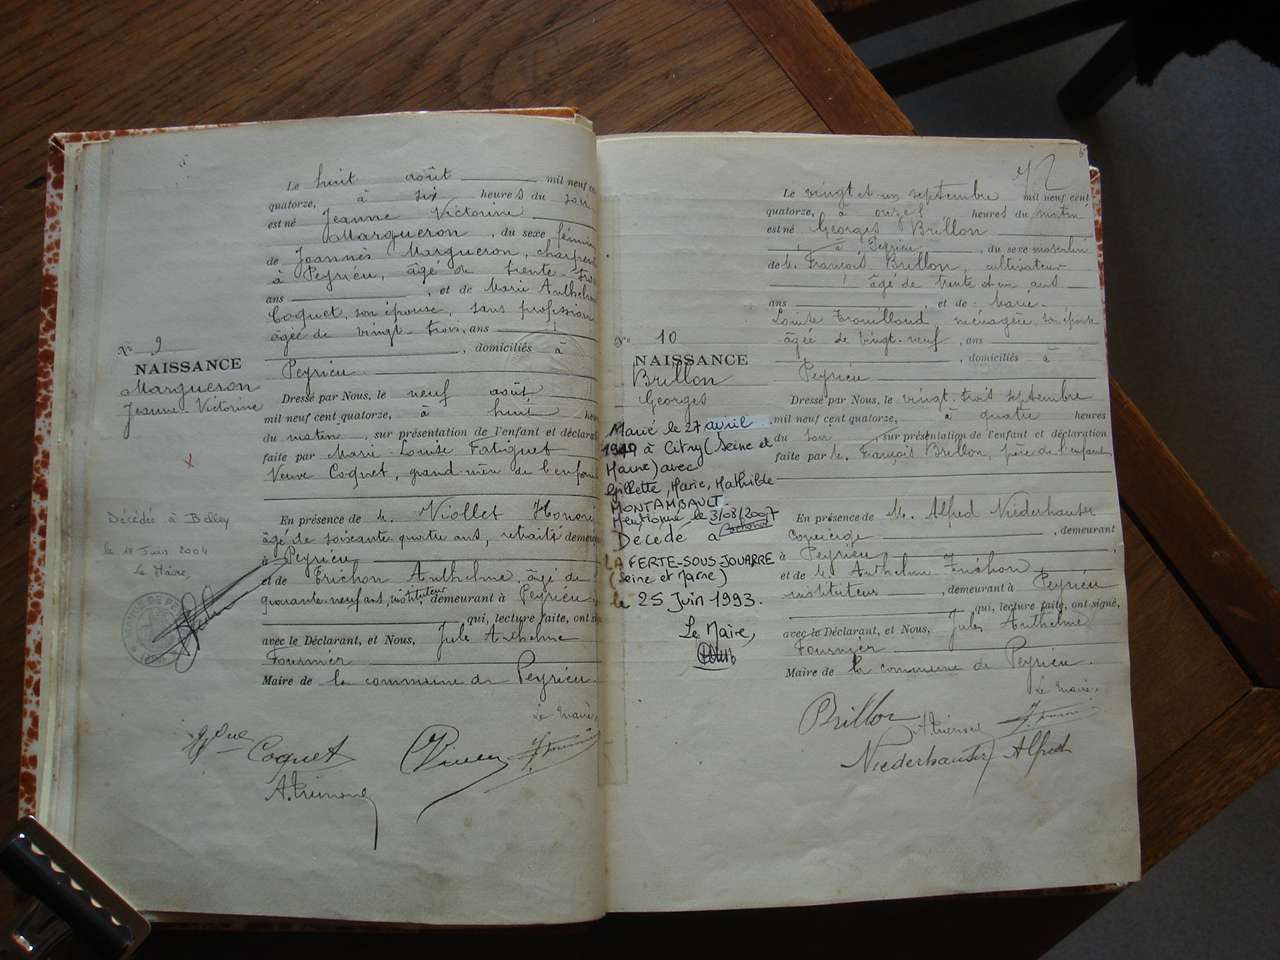 Le huit août mil neuf cent
quatorze, à six heures du soir
est né Jeanne Victorine
Margueron, du sexe fémin
de Joannès Margueron, charpent
à Peyrieu, âgé de trente trois
ans, et de Marie Anthelm
Coquet, son épouse, sans profession
âgée de vingt-trois ans
, domiciliés à
Peyrieu
N° 9
NAISSANCE
Margueron
Jeanne Victorine
Dressé par Nous, le neuf août
mil neuf cent quatorze, à huit heures
du matin, sur présentation de l'enfant et déclara
faite par Marie-Louise Fatiguet
Veuve Coquet, grand mère de l'enfan
Décédée à Belley
le 18 Juin 2004
Le Maire,
En présence de M. Viollet Honoré
âgé de soixante quatre ans, retraité demeur
à Peyrieu
et de Trichon Anthelme, âgé de
quarante neuf ans, instituteur, demeurant à Peyrieu
qui, lecture faite, ont sig
avec le Déclarant, et Nous, Jules Anthelme
Fournier
Maire de la commune de Peyrieu.
Le Maire,
Vve Coquet
72
Le vingt et un septembre mil neuf cent
quatorze, à onze heures du matin
est né Georges Brillon
à Peyrieu, du sexe masculin
de M. François Brillon, cultivateur
âgé de trente et un ans
ans, et de Marie-
Louise Trouilloud ménagère, son épouse
âgée de vingt-neuf, ans
, domiciliés à
Peyrieu
N° 10
NAISSANCE
Brillon
Georges
Marié le 27 avril
1940 à Citry (Seine et
Marne) avec
Gillette, Marie, Mathilde
MONTAMBAULT.
Mentionné le 3/08/2007
Décédé à
LA FERTE-SOUS-JOUARRE
(Seine et Marne)
le 25 Juin 1993.
Le Maire,
Dressé par Nous, le vingt trois septembre
mil neuf cent quatorze, à quatre heures
du soir, sur présentation de l'enfant et déclaration
faite par M. François Brillon, père de l'enfant
En présence de M. Alfred Niederhauser
concierge, demeurant
à Peyrieu
et de M. Anthelme Trichon
instituteur, demeurant à Peyrieu
qui, lecture faite, ont signé,
avec le Déclarant, et Nous, Jules Anthelme
Fournier
Maire de la commune de Peyrieu.
Le Maire,
Brillon
Niederhauser Alfred